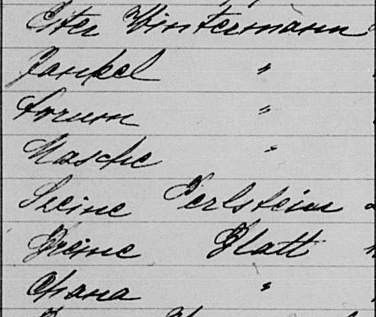 Ester Wintermann
Jankel "
Srum "
Masche "
Sceine Perlstein
Breine Blatt
Chana "